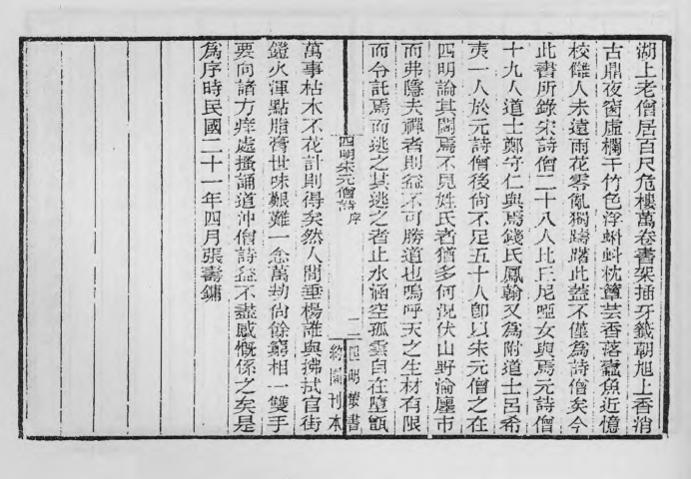 湖上老僧居百尺危樓萬卷書架插牙籤朝旭上香消
古鼎夜窗虛欄干竹色浮蝌蚪枕簟芸香落蠹魚近憶
校讎人未遠雨花零亂獨躊躇此蓋不僅為詩僧矣今
此書所錄宋詩僧二十八人比丘尼啞女與焉元詩僧
十九人道士鄭守仁與焉錢氏鳳翰又為附道士呂希
夷一人於元詩僧後尙不足五十人卽以宋元僧之在
四明論其闕焉不見姓氏者猶多何況伏山野淪廛市
而弗隱夫禪者則益不可勝道也嗚呼天之生材有限
而令託焉而逃之其逃之者止水涵空孤雲自在墮甑
四明宋元僧詩 序
二
四明叢書
約園刊本
萬事枯木不花計則得矣然人間垂楊誰與拂拭官街
鐙火渾點脂膏世味艱難一念萬劫尙餘窮相一雙手
要向諸方痒處搔誦道沖僧詩益不盡感慨係之矣是
為序時民國二十一年四月張壽鏞